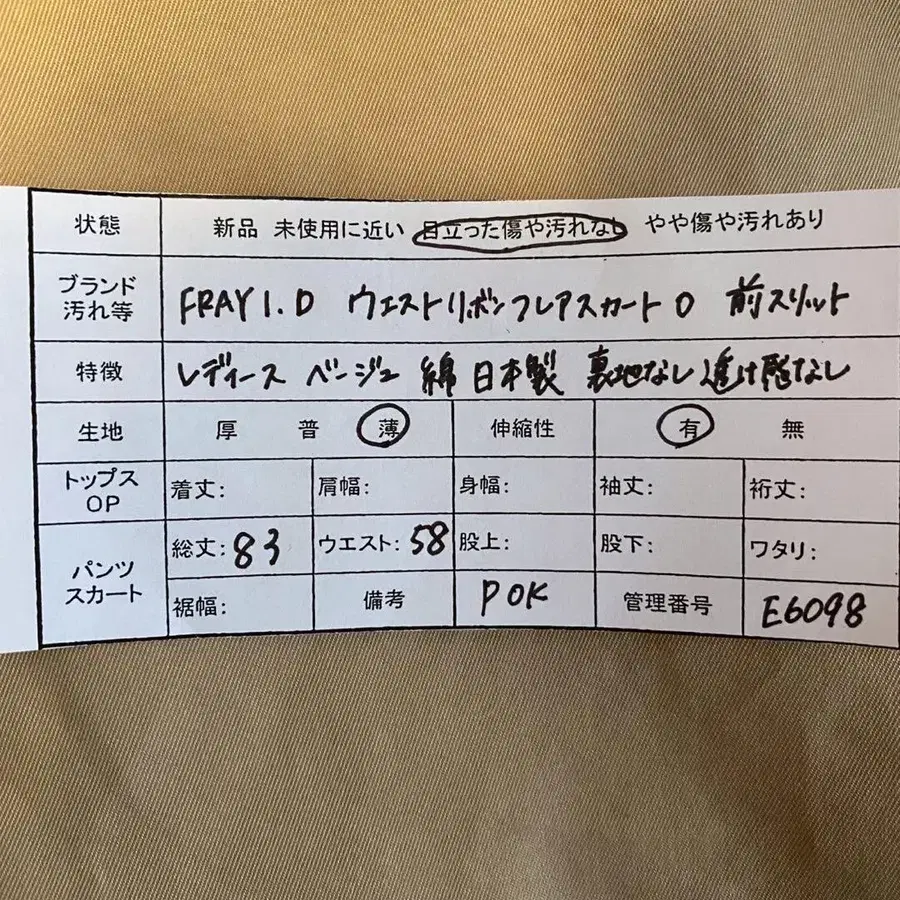 状態 新品 未使用に近い 目立った傷や汚れなし やや傷や汚れあり
ブランド
汚れ等 FRAY I.D ウエストリボンフレアスカート 0 前スリット
特徴 レディース ベージュ 綿 日本製 裏地なし 透け感なし
生地 厚 普 薄 伸縮性 有 無
トップス
OP 着丈: 肩幅: 身幅: 袖丈: 裄丈:
パンツ
スカート 総丈: 83 ウエスト: 58 股上: 股下: ワタリ:
裾幅: 備考 POK 管理番号 E6098